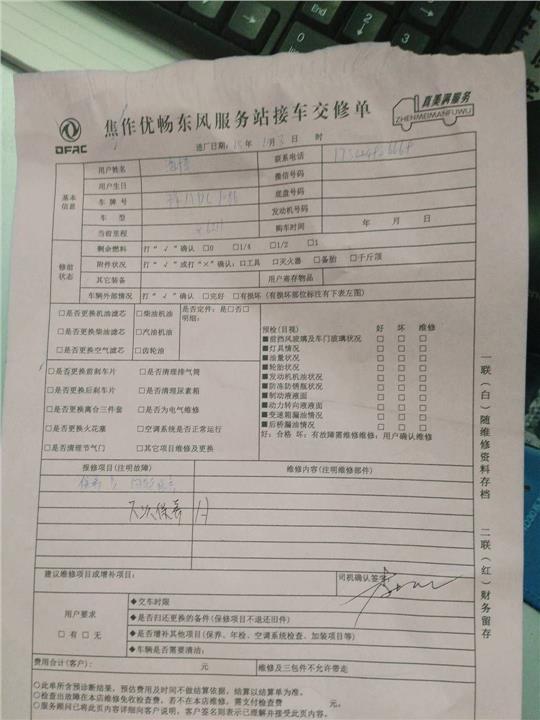 DFAC
焦作优畅东风服务站接车交修单
真美满服务
ZHENMEIMANFUWU
进厂日期: 年 月 日 时
基本信息
用户姓名
联系电话
用户生日
微信号码
车牌号
底盘号码
车型
发动机号码
当前里程
购车时间 年 月 日
修前状态
剩余燃料 打“√”确认 □0 □1/4 □1/2 □1
附件状况 打“√”或打“×”确认: □工具 □灭火器 □备胎 □千斤顶
其它装备
用户寄存物品
车辆外部情况 打“√”确认 □完好 □有损坏 (有损坏部位标注有下表左图)
□是否更换机油滤芯
□柴油机油
□是否更换柴油滤芯
□汽油机油
□是否更换空气滤芯
□齿轮油
是否定件: 是□否□
明细:
□是否更换前刹车片
□是否清理排气筒
□是否更换后刹车片
□是否清理尿素箱
□是否更换离合三件套
□是否为电气维修
□是否更换火花塞
□空调系统是否正常运行
□是否清理节气门
□其它项目维修及更换
预检(目视) 好 坏 维修
■前挡风玻璃及车门玻璃状况 □ □ □
■灯具情况 □ □ □
■油量状况 □ □ □
■轮胎状况 □ □ □
■发动机机油状况 □ □ □
■防冻防锈瓶状况 □ □ □
■制动液液面 □ □ □
■动力转向液液面 □ □ □
■变速箱漏油情况 □ □ □
■后桥漏油情况 □ □ □
好: 合格 坏: 有故障需维修维修: 用户确认维修
报修项目(注明故障)
维修内容(注明维修部件)
下次保养
建议维修项目或增补项目:
司机确认签字
用户要求
□有 □无
◆交车时限
◆是否归还更换的备件(保修项目不退还旧件)
◆是否增补其他项目(保养、年检、空调系统检查、加装项目等)
◆车辆是否需要清洁:
费用合计(客户): 元
维修及三包件不允许带走
○此单所含预诊断结果, 预估费用及时间不做结算依据, 结算以结算单为准。
○检查出故障在本店维修免收检查费, 若不在本店维修, 需支付检查费 元。
○服务顾问已将此页内容详细向客户说明, 客户签名则表示已理解并接受此页内容。
一联(白)随维修资料存档
二联(红)财务留存